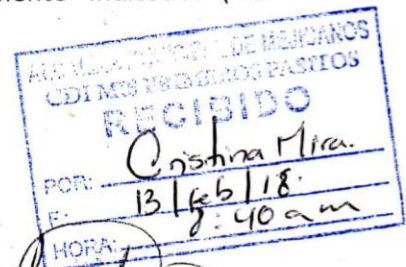 ALCALDIA MUNICIPAL DE MEJICANOS
CDI MIS PRIMEROS PASITOS
RECIBIDO
POR: Cristina Mira.
F.: 13/feb/18.
HORA: 8:40 am